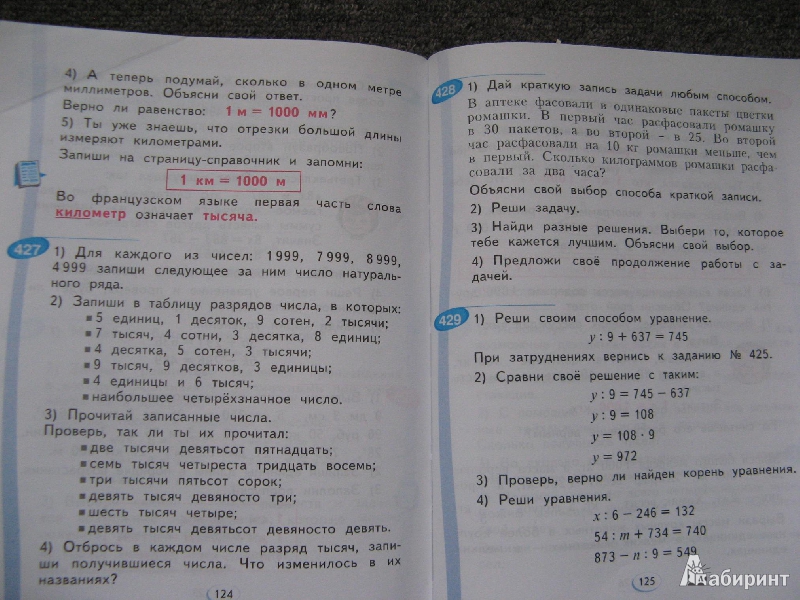 4) А теперь подумай, сколько в одном метре
миллиметров. Объясни свой ответ.
Верно ли равенство: 1 м = 1000 мм?
5) Ты уже знаешь, что отрезки большой длины
измеряют километрами.
Запиши на страницу-справочник и запомни:
1 км = 1000 м
Во французском языке первая часть слова
километр означает тысяча.
427
1) Для каждого из чисел: 1 999, 7 999, 8 999,
4 999 запиши следующее за ним число натураль-
ного ряда.
2) Запиши в таблицу разрядов числа, в которых:
▪ 5 единиц, 1 десяток, 9 сотен, 2 тысячи;
▪ 7 тысяч, 4 сотни, 3 десятка, 8 единиц;
▪ 4 десятка, 5 сотен, 3 тысячи;
▪ 9 тысяч, 9 десятков, 3 единицы;
▪ 4 единицы и 6 тысяч;
▪ наибольшее четырёхзначное число.
3) Прочитай записанные числа.
Проверь, так ли ты их прочитал:
▪ две тысячи девятьсот пятнадцать;
▪ семь тысяч четыреста тридцать восемь;
▪ три тысячи пятьсот сорок;
▪ девять тысяч девяносто три;
▪ шесть тысяч четыре;
▪ девять тысяч девятьсот девяносто девять.
4) Отбрось в каждом числе разряд тысяч, запи-
ши получившиеся числа. Что изменилось в их
названиях?
124
428
1) Дай краткую запись задачи любым способом.
В аптеке фасовали в одинаковые пакеты цветки
ромашки. В первый час расфасовали ромашку
в 30 пакетов, а во второй – в 25. Во второй
час расфасовали на 10 кг ромашки меньше, чем
в первый. Сколько килограммов ромашки расфа-
совали за два часа?
Объясни свой выбор способа краткой записи.
2) Реши задачу.
3) Найди разные решения. Выбери то, которое
тебе кажется лучшим. Объясни свой выбор.
4) Предложи своё продолжение работы с за-
дачей.
429
1) Реши своим способом уравнение.
y : 9 + 637 = 745
При затруднениях вернись к заданию № 425.
2) Сравни своё решение с таким:
y : 9 = 745 – 637
y : 9 = 108
y = 108 · 9
y = 972
3) Проверь, верно ли найден корень уравнения.
4) Реши уравнения.
x : 6 – 246 = 132
54 : m + 734 = 740
873 – n : 9 = 549
125
Лабиринт